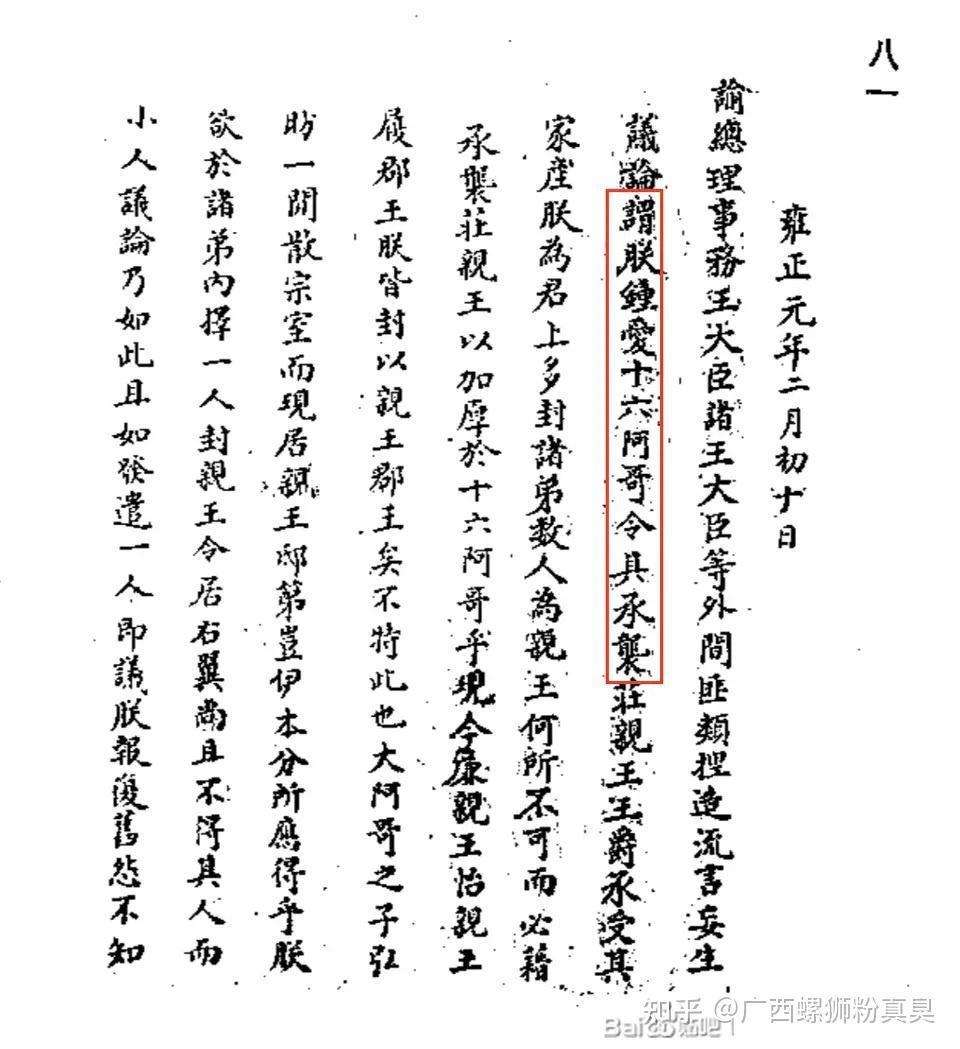 八一
雍正元年二月初十日
諭總理事務王大臣諸王大臣等外間匪類捏造流言妄生
議論謂朕鍾愛十六阿哥令其承襲莊親王王爵承受其
家產朕為君上多封諸弟数人為親王何所不可而必藉
承襲莊親王以加厚於十六阿哥乎現今廉親王怡親王
履郡王朕皆封以親王郡王矣不特此也大阿哥之子弘
昉一閒散宗室而現居親王邸第豈伊本分所應得乎朕
欲於諸弟內擇一人封親王令居右翼尚且不得其人而
小人議論乃如此且如發遣一人即議朕報復舊怨不知
知乎 @广西螺狮粉真臭
Bai 贴吧